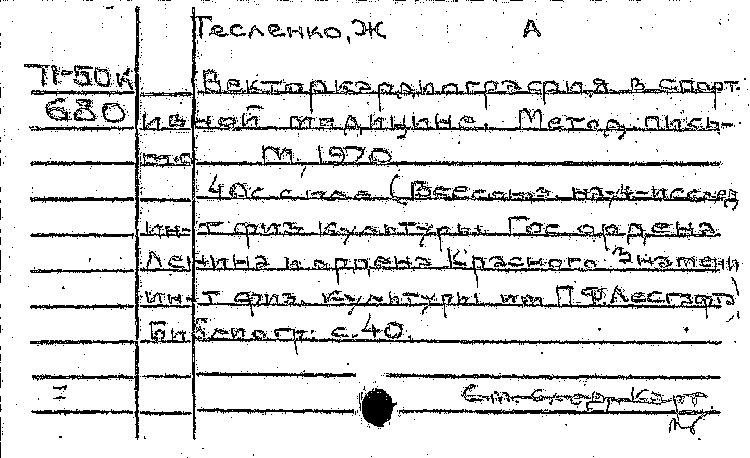 Тесленко, Ж А
П-50К Векторкардиография в спорт-
680 ивной медицине. Метод. пись-
мо М, 1970
40с с илл (Всесоюз. науч-исслед
ин-т физ культуры Гос ордена
Ленина и ордена Красного Знамени
ин-т физ. культуры им П.Ф.Лесгафта)
Библиогр: с. 40.
См. след. карт.